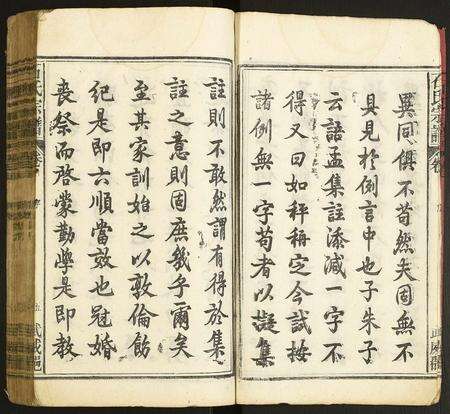 異同俱不苟然矣固無不
具見於例言中也子朱子
云語孟集註添減一字不
得又曰如秤稱定今試按
諸例無一字苟者以擬集
註則不敢然謂有得於集
註之意則固庶幾乎爾矣
至其家訓始之以敦倫飭
紀是即六順當效也冠婚
喪祭而啓蒙勤學是即教
氏宗譜